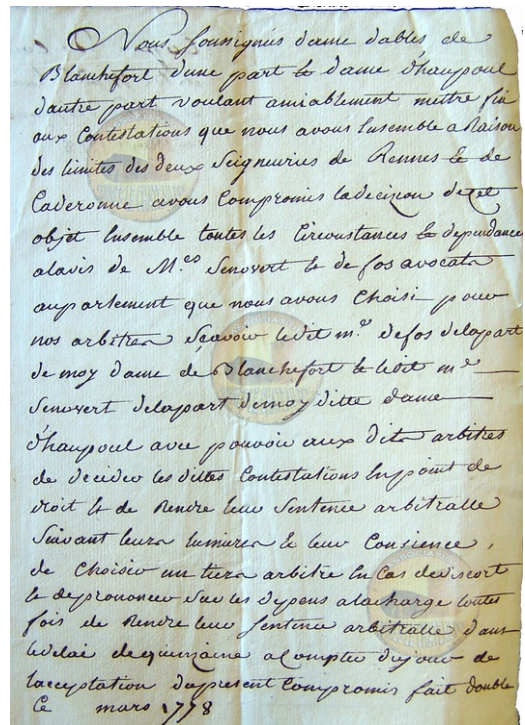 Nous soussignés dame dables de
Blanchefort dune part & dame d'haupoul
dautre part voulant amiablement mettre fin
aux Contestations que nous avons Ensemble a Raison
des limites des deux Seigneuries de Rennes & de
Caderonne avons Compromis ladecizon decet
objet Ensemble toutes les Circonstances & dependances
alavis de M.es Senovert & de fos avocats
auparlement que nous avons Choisi pour
nos arbitres Sçavoir ledit m.e defos delapart
de moy dame de Blanchefort & ledit m.e
Senovert delapart demoy ditte dame
d'haupoul avec pouvoir aux dits arbitres
de decider les dittes Contestations En point de
droit & de Rendre leur Sentence arbitralle
Suivant leurs lumieres & leur Consience,
de Choisir un tiers arbitre En Cas de discort
& deprononcer Sur les depens alacharge toutes
fois de Rendre leur Sentence arbitralle dans
ledelai dequinzaine aCompter dujour de
lacceptation dupresent Compromis fait double
Ce mars 1778